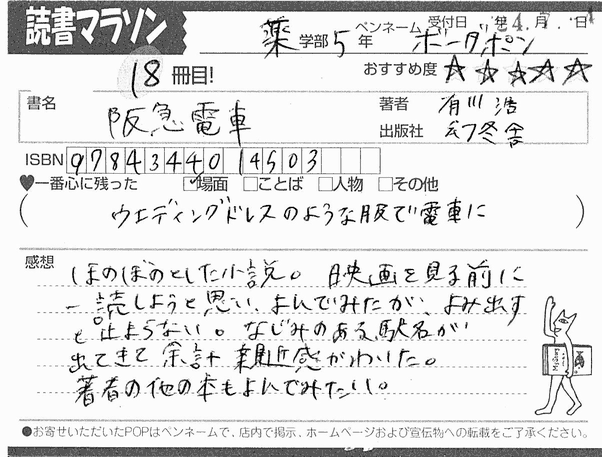 読書マラソン
薬 学部 5 年 ペンネーム ボーダポン 受付日 4.月 日
18 冊目! おすすめ度 ☆☆☆☆☆
書名 阪急電車
著者 有川浩
出版社 幻冬舎
ISBN 9784344014503
♥一番心に残った ☑場面 □ことば □人物 □その他
( ウエディングドレスのような服で電車に )
感想
ほのぼのとした小説。映画を見る前に
一読しようと思い、よんでみたが、よみ出す
と止まらない。なじみのある駅名が
出てきて余計親近感がわいた。
著者の他の本もよんでみたい。
●お寄せいただいたPOPはペンネームで、店内で掲示、ホームページおよび宣伝物への転載をご了承ください。